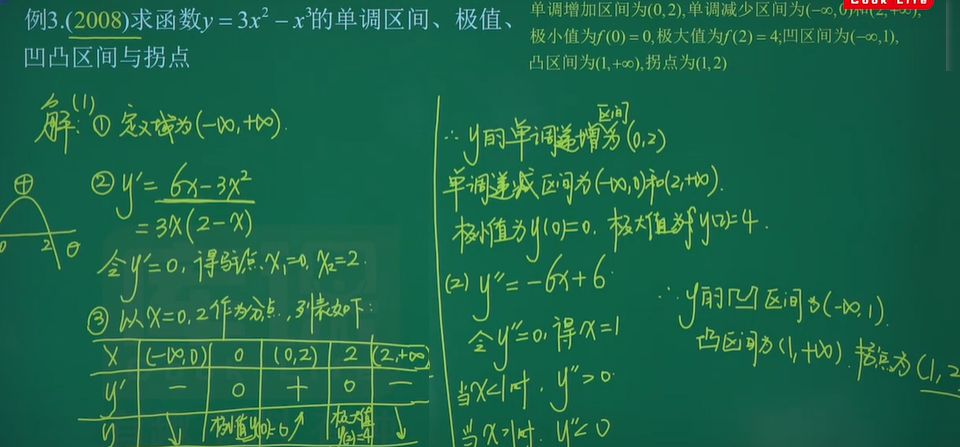 例3.(2008)求函数y = 3x² − x³的单调区间、极值、
凹凸区间与拐点
单调增加区间为(0,2),单调减少区间为(−∞,0)和(2,+∞),
极小值为f(0) = 0,极大值为f(2) = 4;凹区间为(−∞,1),
凸区间为(1,+∞),拐点为(1,2)
解:(1) ① 定义域为(−∞,+∞).
② y′ = 6x−3x²
= 3x(2−x)
令y′=0, 得驻点、x₁=0, x₂=2.
⊕
0 2 ⊖
③ 以x=0,2作为分点, 列表如下:
x (−∞,0) 0 (0,2) 2 (2,+∞)
y′ − 0 + 0 −
y ↘ 极小值y(0)=0 ↗ 极大值y(2)=4 ↘
∴ y的单调递增区间为(0,2)
单调递减区间为(−∞,0)和(2,+∞).
极小值为y(0)=0. 极大值为y(2)=4.
(2) y″ = −6x+6
令y″=0, 得x=1
当x<1时, y″>0.
当x>1时, y″<0
∴ y的凹区间为(−∞,1).
凸区间为(1,+∞). 拐点为(1,2